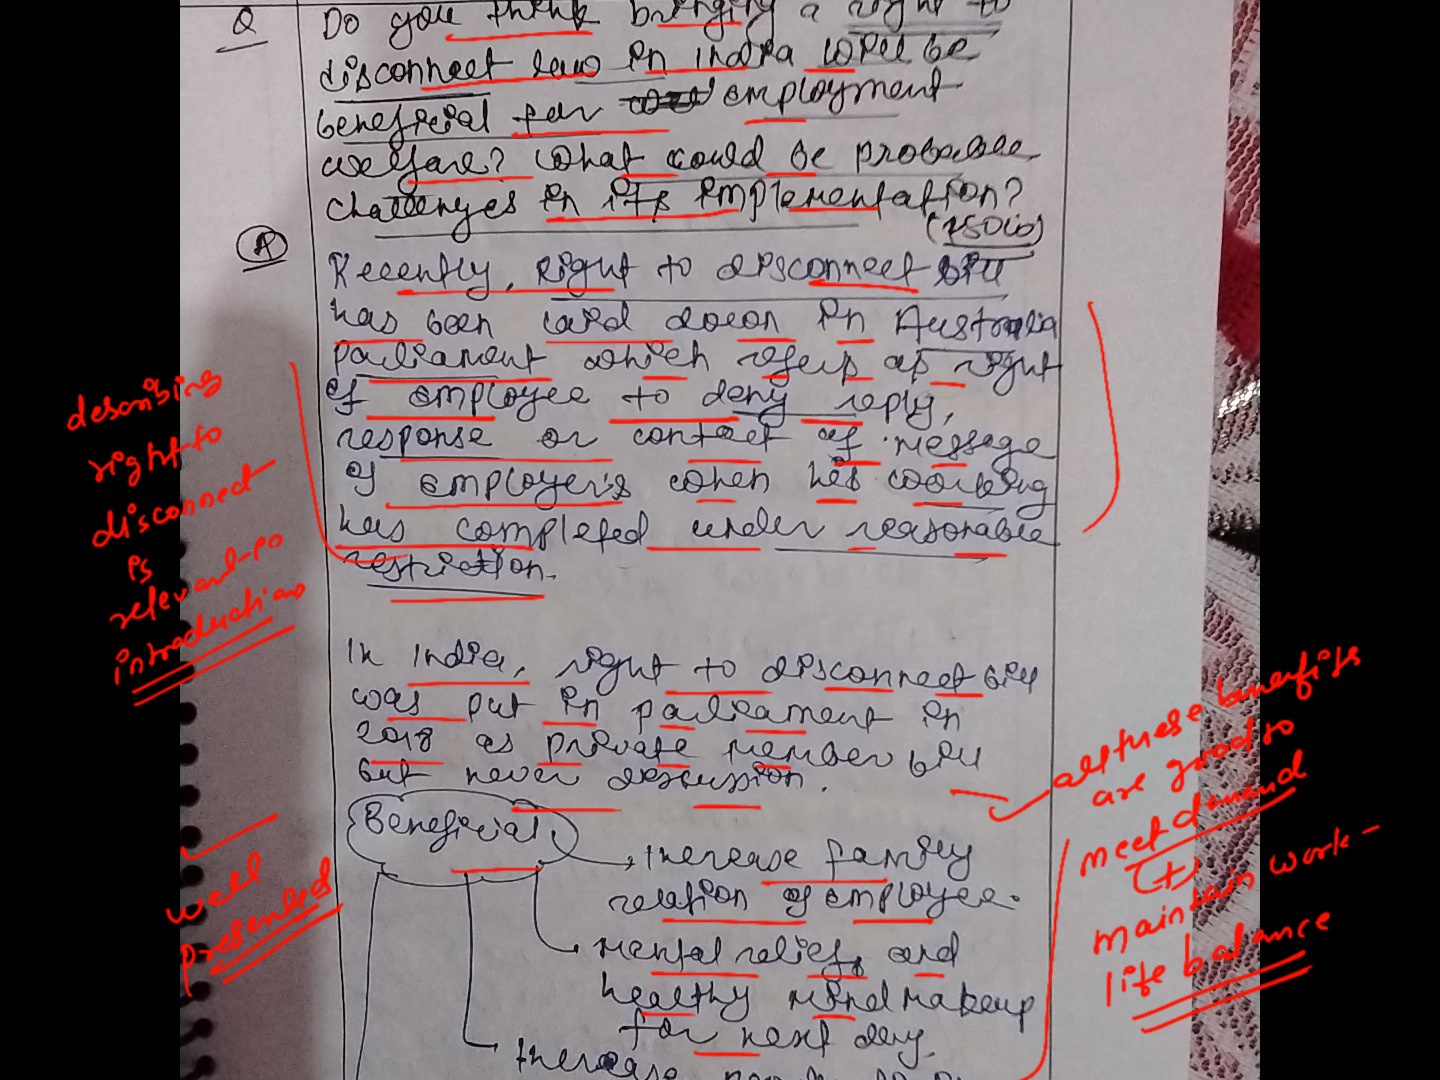 Q Do you think bringing a right to
disconnect law in India will be
beneficial for employment
welfare? What could be probable
challenges in its implementation?
(150W)
A Recently, Right to disconnect bill
has been laid down in Australia
parliament which refers as right
of employee to deny reply,
response or contact of message
of employer's when his working
has completed under reasonable
restriction.
describing
right to
disconnect
is
relevant in
introduction
In India, right to disconnect bill
was put in parliament in
2018 as private member bill
but never discussion.
Beneficial
well
presented
→ Increase family
relation of employee.
mental relief, and
healthy mind makeup
for next day.
Increase
all these benefits
are good to
meet demand
(+)
maintain work-
life balance